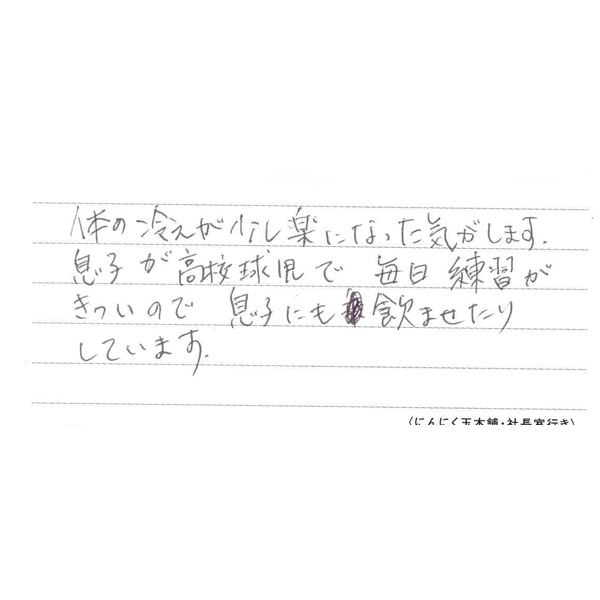 体の冷えが少し楽になった気がします.
息子が高校球児で 毎日 練習が
きついので 息子にも飲ませたり
しています.
(にんにく玉本舗・社長室行き)